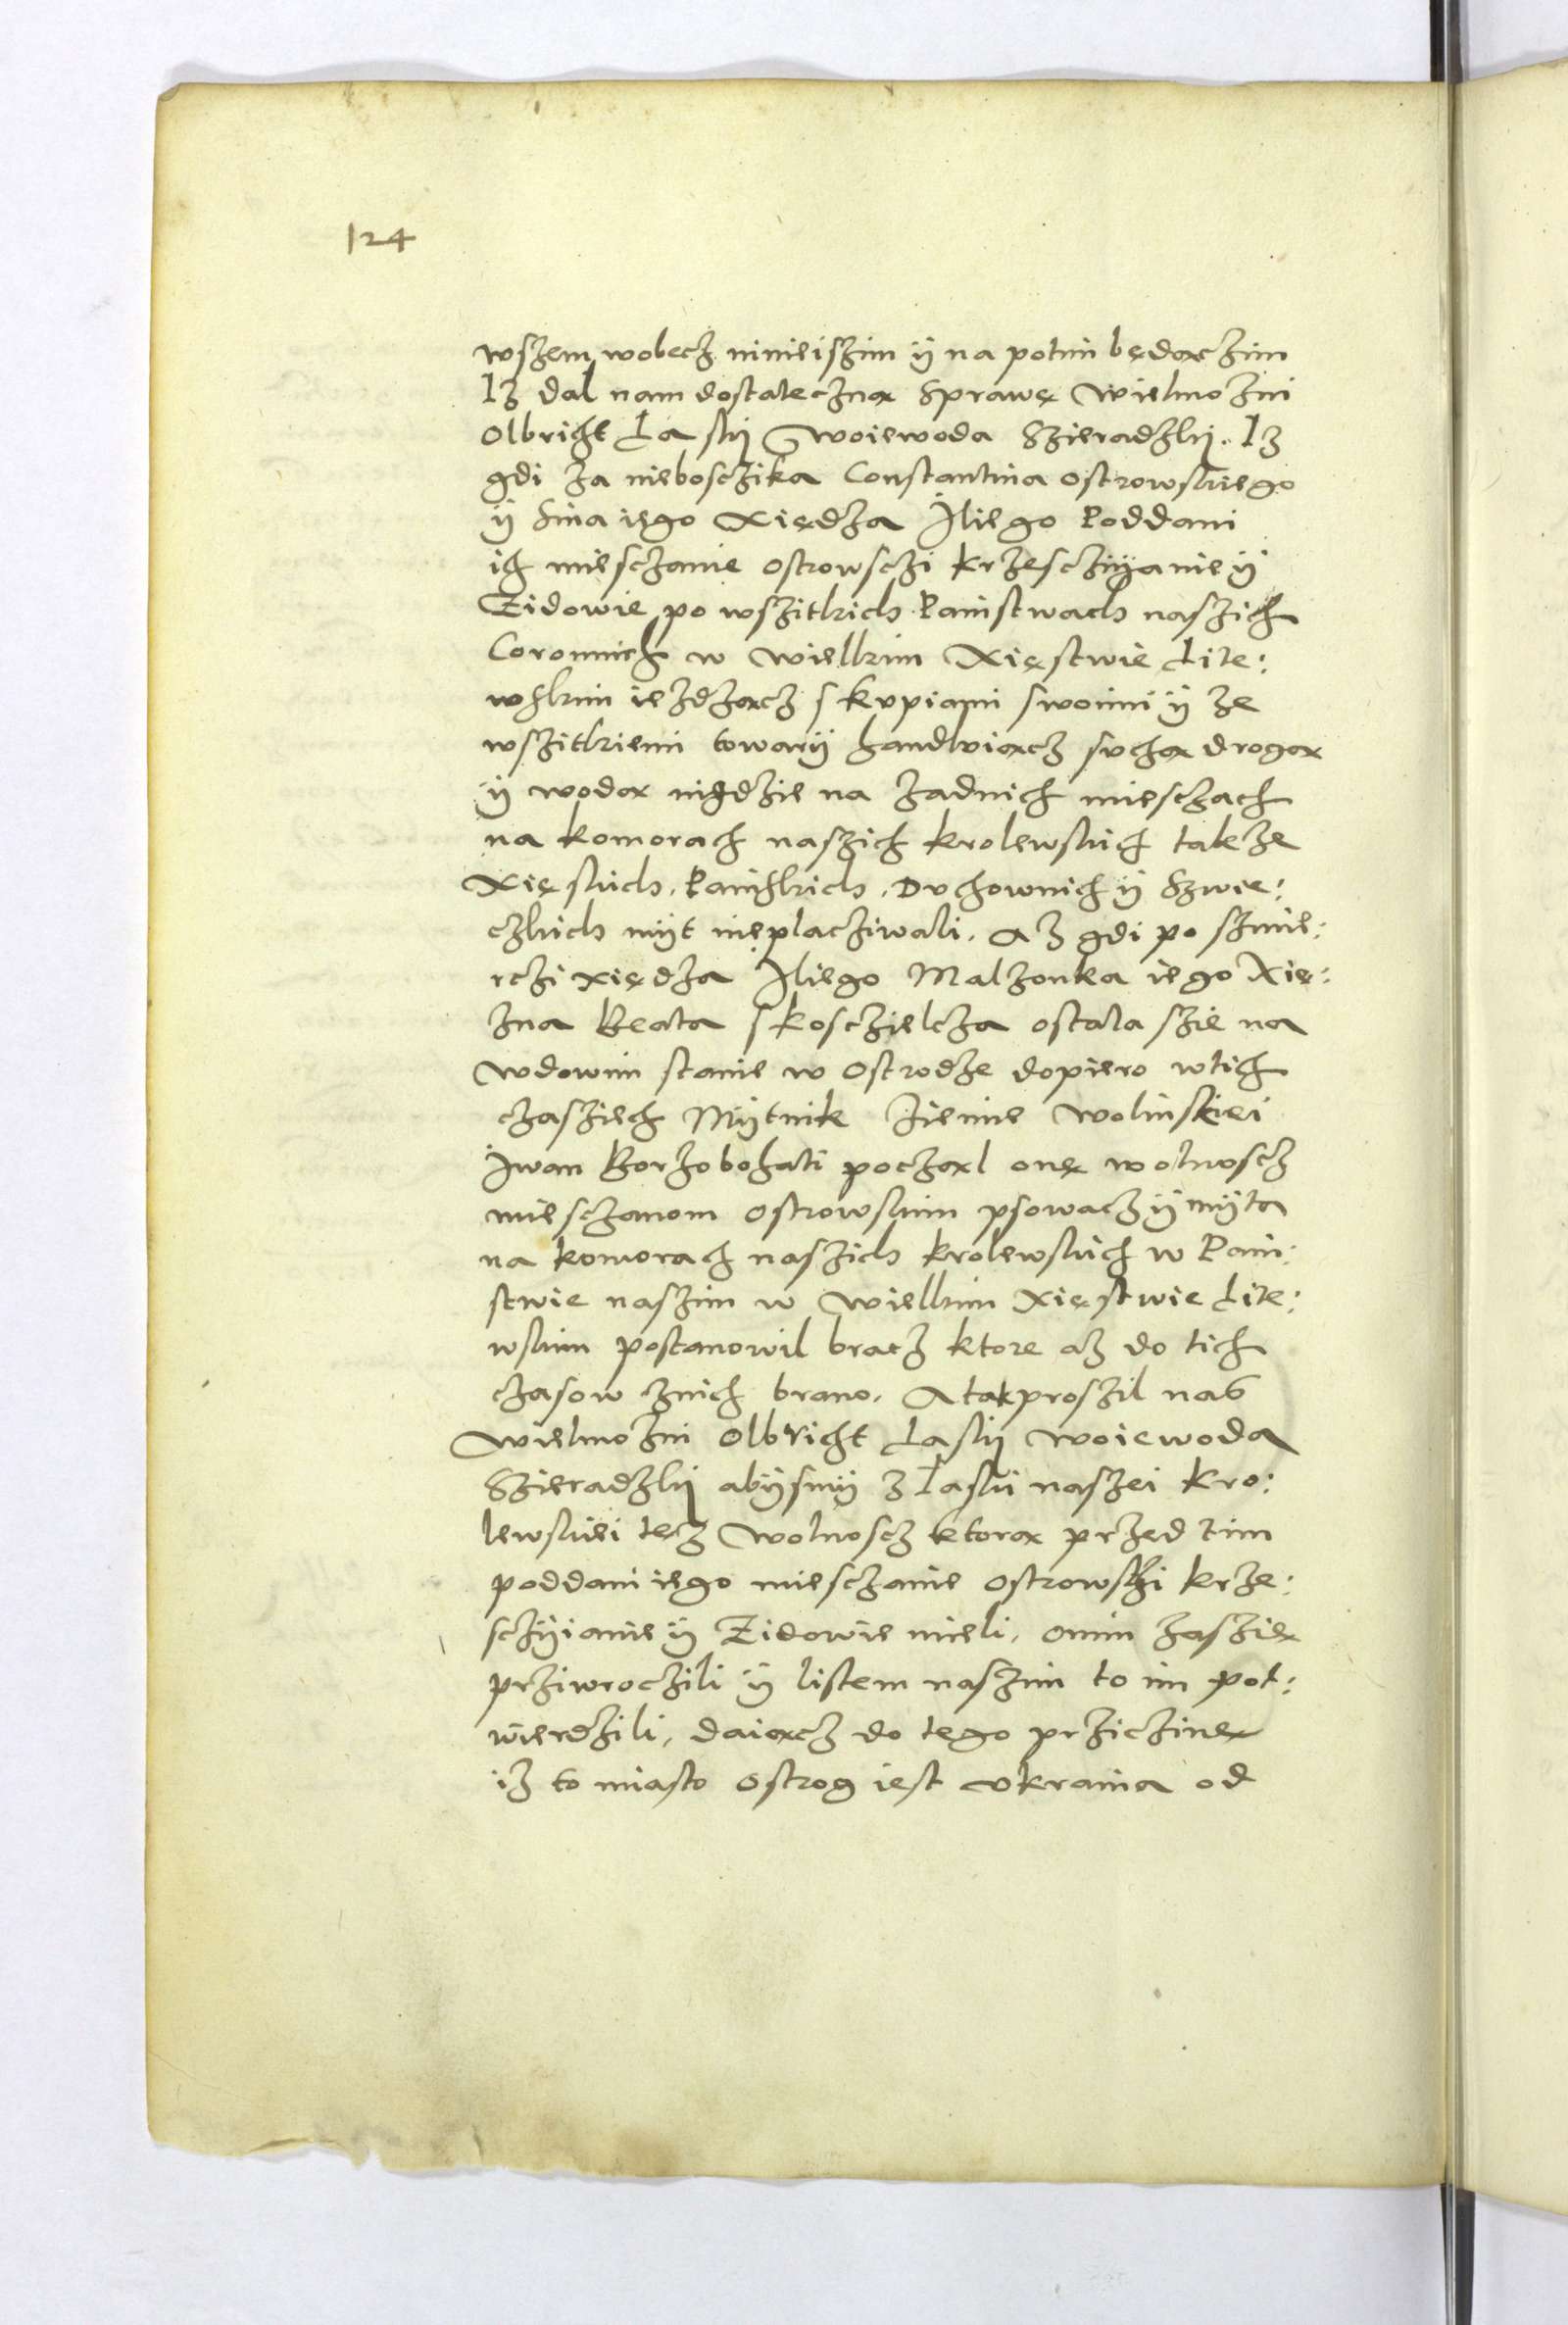 124
wszem wobecz ninieiszim ÿ na potim będączim
Iż dal nam dostateczną Sprawę Wielmożni
Olbricht Łaskÿ Woiewoda Szieradzkÿ. Iż
gdi za nieboszczika Constantina Ostrowskiego
ÿ Sina iego Xiędza Iliego Poddani
ich miesczanie Ostrowsczi krzesczÿanie ÿ
Zidowie po wszitkich Painstwach naszich
Coronnich w Wielkim Xięstwie Lite:
wskim ieżdżącz s kupiami swoimi ÿ ze
wszitkiemi towarÿ handluiącz suchą drogą
ÿ wodą nigdzie na żadnich miesczach
na komorach naszich krolewskich także
Xięskich, Painskich, Duchownich ÿ Szwie:
czkich mÿt nieplacziwali. Aż gdi po szmie:
rczi xiędza Iliego Malżonka iego Xię:
żna Beata s Kosczielcza ostala szie na
wdowim stanie w Ostrodze dopiero w tich
czasziech Mÿtnik ziemie Wolinskiei
Iwan Borzobohati począl onę wolnoscz
miesczanom Ostrowskim psowacz ÿ mÿta
na komorach naszich krolewskich w Pain:
stwie naszim w Wielkim Xięstwie Lite:
wskim postanowil bracz ktore aż do tich
czasow znich brano. A tak proszil nas
Wielmożni Olbricht Łaskÿ Woiewoda
Szieradzkÿ abÿsmÿ z Łaski naszei kro:
lewskiei też Wolnoscz ktorą przed tim
poddani iego miesczanie Ostrowsczi krze:
sczÿianie ÿ Zidowie mieli, onim zaszię
prziwroczili ÿ listem naszim to im pot:
wierdzili, daiącz do tego przicziną
iż to miasto Ostrog iest Ukraina od